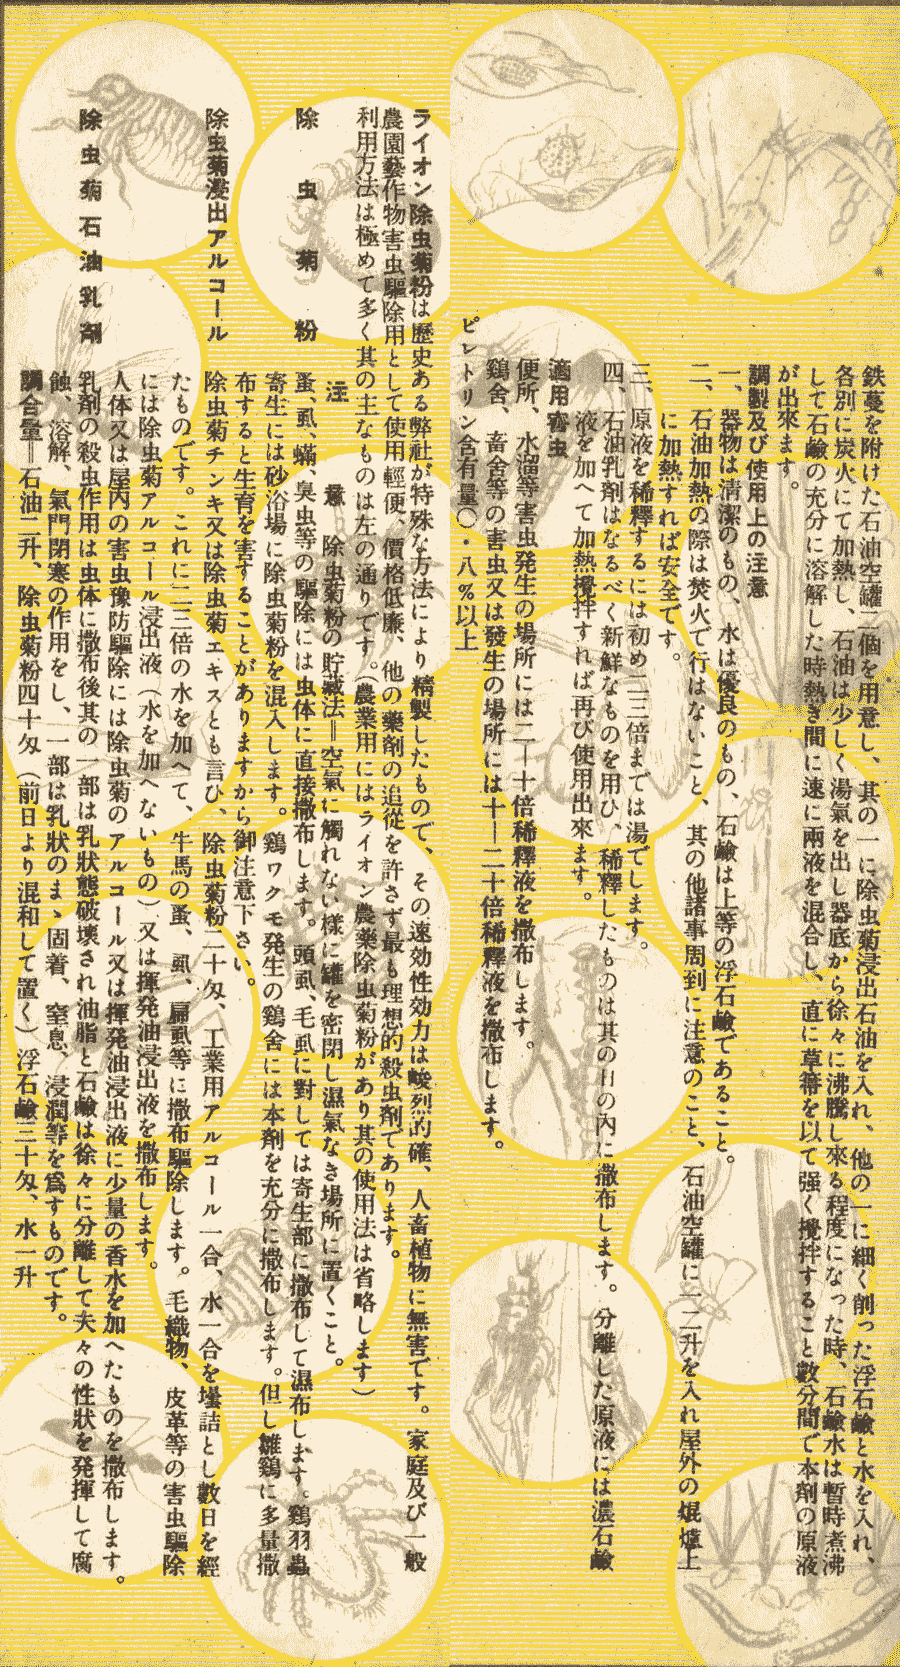 ライオン除虫菊粉は歴史ある弊社が特殊な方法により精製したもので、その速効性効力は峻烈的確、人畜植物に無害です。家庭及び一般
農園藝作物害虫驅除用として使用輕便、價格低廉、他の藥劑の追從を許さず最も理想的殺虫劑であります。
利用方法は極めて多く其の主なものは左の通りです。(農業用にはライオン農藥除虫菊粉があり其の使用法は省略します)
注意 除虫菊粉の貯藏法=空氣に觸れない樣に罐を密閉し濕氣なき場所に置くこと。
除虫菊粉 蚤、虱、蟎、臭虫等の驅除には虫体に直接撒布します。頭虱、毛虱に對しては寄生部に撒布して濕布します。鷄羽蟲
寄生には砂浴場に除虫菊粉を混入します。鷄ワクモ発生の鷄舍には本劑を充分に撒布します。但し雛鷄に多量撒
布すると生育を害することがありますから御注意下さい。
除虫菊浸出アルコール 除虫菊チンキ又は除虫菊エキスとも言ひ、除虫菊粉二十匁、工業用アルコール一合、水一合を壜詰とし數日を經
たものです。これに二三倍の水を加へて、牛馬の蚤、虱、扁虱等に撒布驅除します。毛織物、皮革等の害虫驅除
には除虫菊アルコール浸出液(水を加へないもの)又は揮発油浸出液を撒布します。
人体又は屋内の害虫豫防驅除には除虫菊のアルコール又は揮発油浸出液に少量の香水を加へたものを撒布します。
除虫菊石油乳劑 乳劑の殺虫作用は虫体に撒布後其の一部は乳狀態破壞され油脂と石鹼は徐々に分離して夫々の性狀を発揮して腐
蝕、溶解、氣門閉塞の作用をし、一部は乳狀のまゝ固着、窒息、浸潤等を爲すものです。
調合量=石油二升、除虫菊粉四十匁(前日より混和して置く)浮石鹼三十匁、水一升
鉄蔓を附けた石油空罐二個を用意し、其の一に除虫菊浸出石油を入れ、他の一に細く削った浮石鹼と水を入れ、
各別に炭火にて加熱し、石油は少しく湯氣を出し器底から徐々に沸騰し來る程度になった時、石鹼水は暫時煮沸
して石鹼の充分に溶解した時熱き間に速に兩液を混合し、直に草箒を以て强く攪拌すること數分間で本劑の原液
が出來ます。
調製及び使用上の注意
一、器物は清潔のもの、水は優良のもの、石鹼は上等の浮石鹼であること。
二、石油加熱の際は焚火で行はないこと、其の他諸事周到に注意のこと、石油空罐に一二升を入れ屋外の焜爐上
に加熱すれば安全です。
三、原液を稀釋するには初め二三倍までは湯でします。
四、石油乳劑はなるべく新鮮なものを用ひ、稀釋したものは其の日の内に撒布します。分離した原液には濃石鹼
液を加へて加熱攪拌すれば再び使用出來ます。
適用害虫
便所、水溜等害虫発生の場所には二―十倍稀釋液を撒布します。
鷄舍、畜舍等の害虫又は發生の場所には十―二十倍稀釋液を撒布します。
ピレトリン含有量〇・八%以上